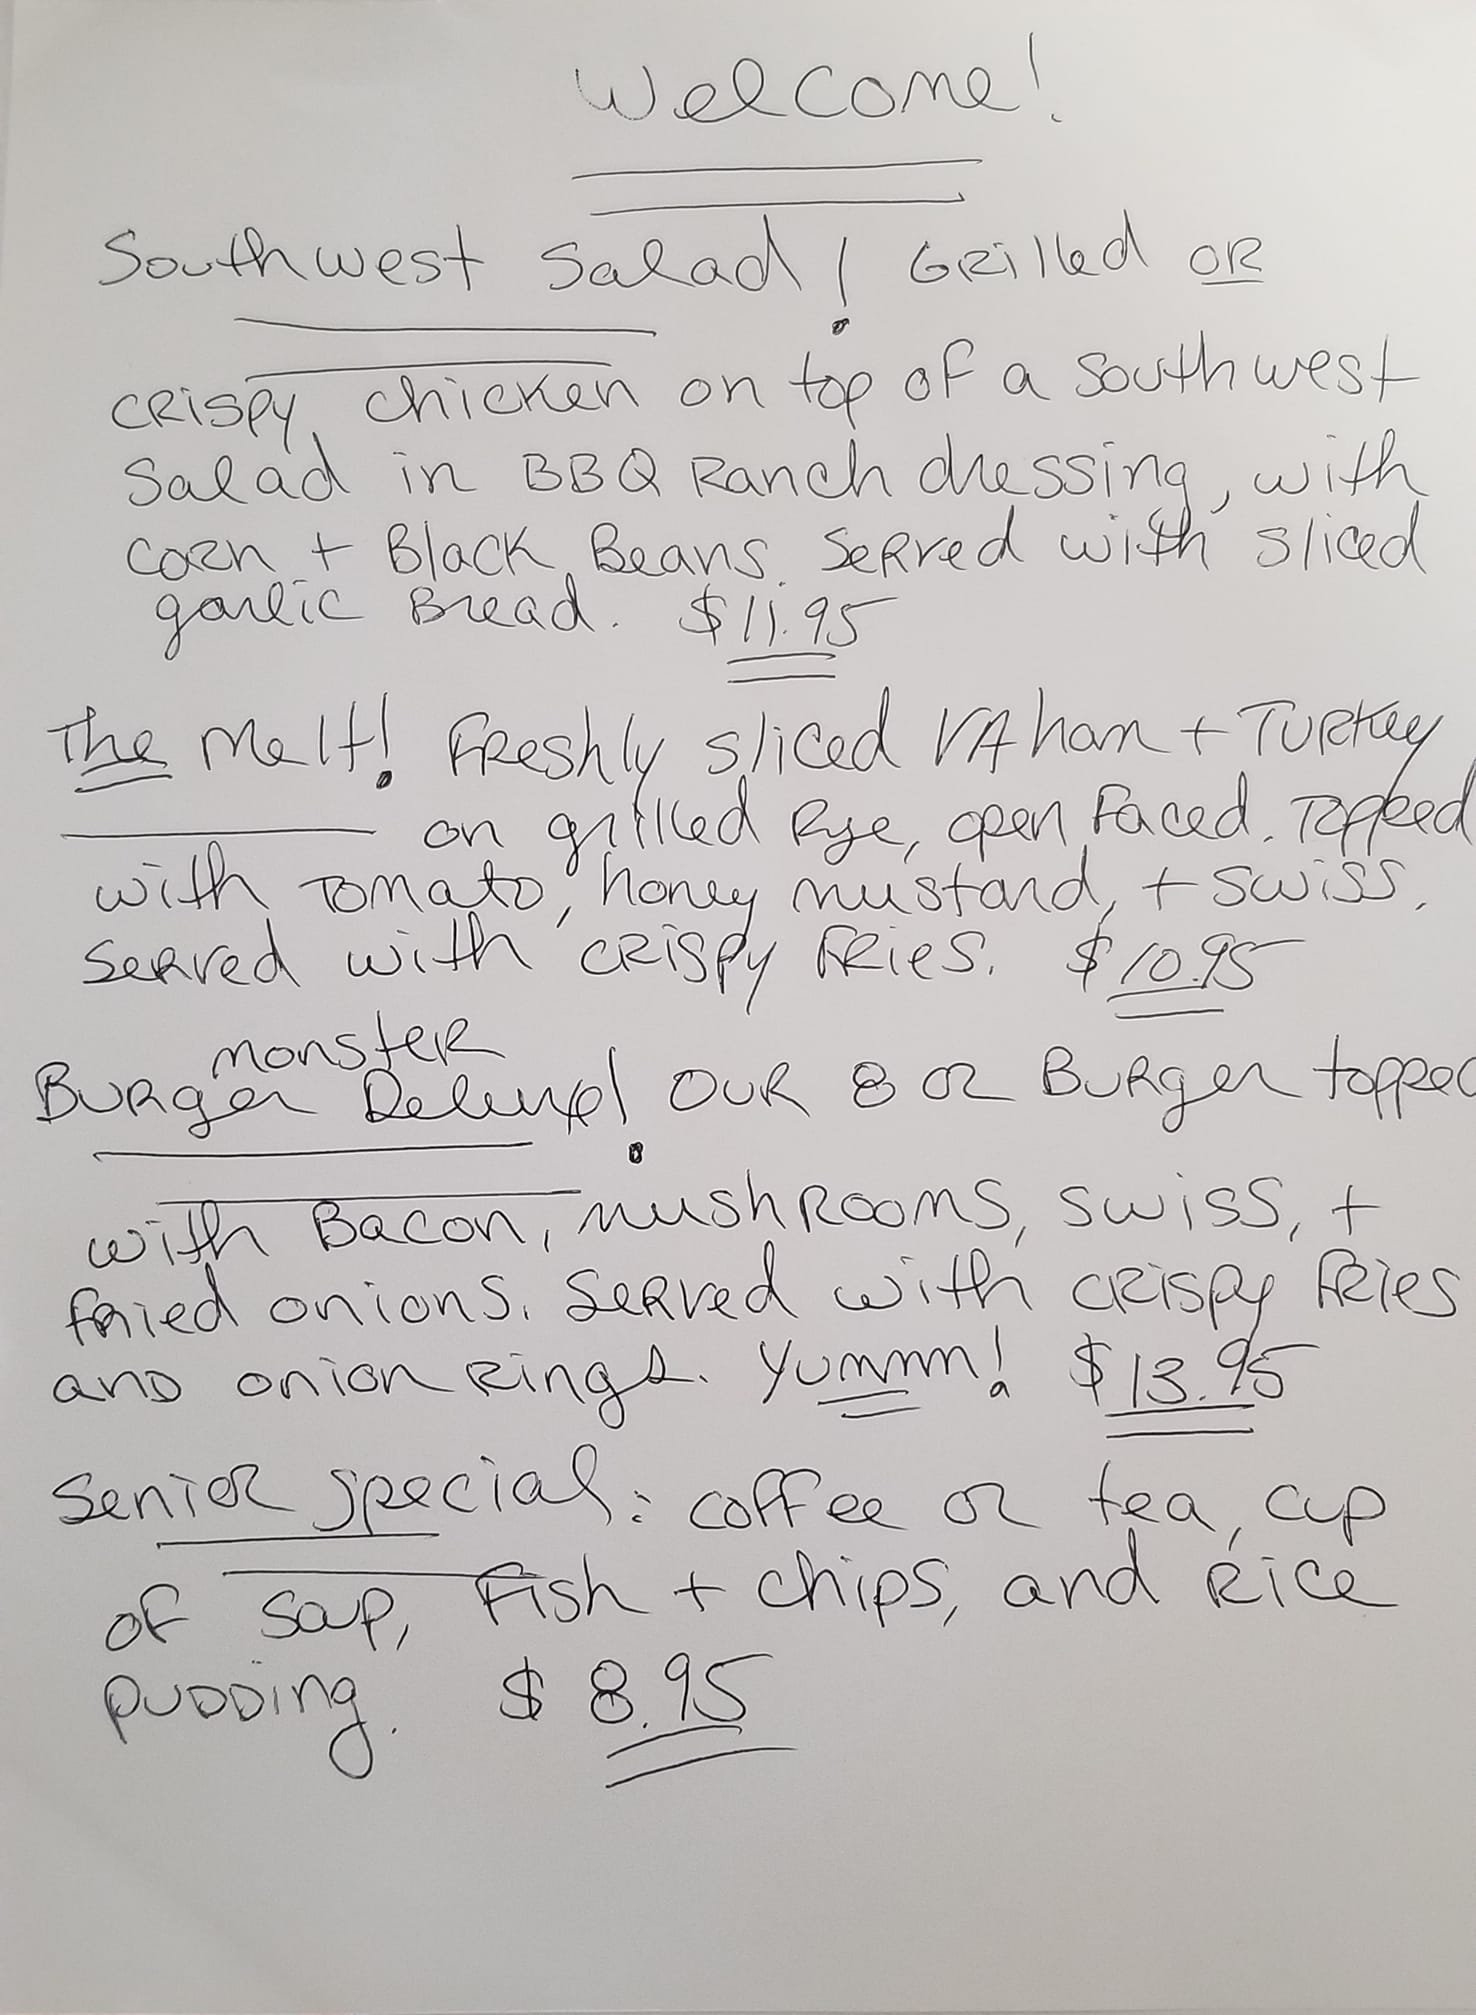 Welcome!
Southwest Salad! Grilled OR
crispy chicken on top of a Southwest
Salad in BBQ Ranch dressing, with
corn + Black Beans. Served with sliced
garlic Bread. $11.95
The Melt! Freshly sliced VA ham + Turkey
on grilled Rye, open faced. Topped
with Tomato, honey mustard, + swiss.
Served with crispy fries. $10.95
monster
Burger Deluxe! OUR 8 oz Burger topped
with Bacon, mushrooms, swiss, +
fried onions. Served with crispy fries
and onion rings. Yummm! $13.95
Senior special: coffee or tea, cup
of soup, Fish + chips, and Rice
pudding. $8.95